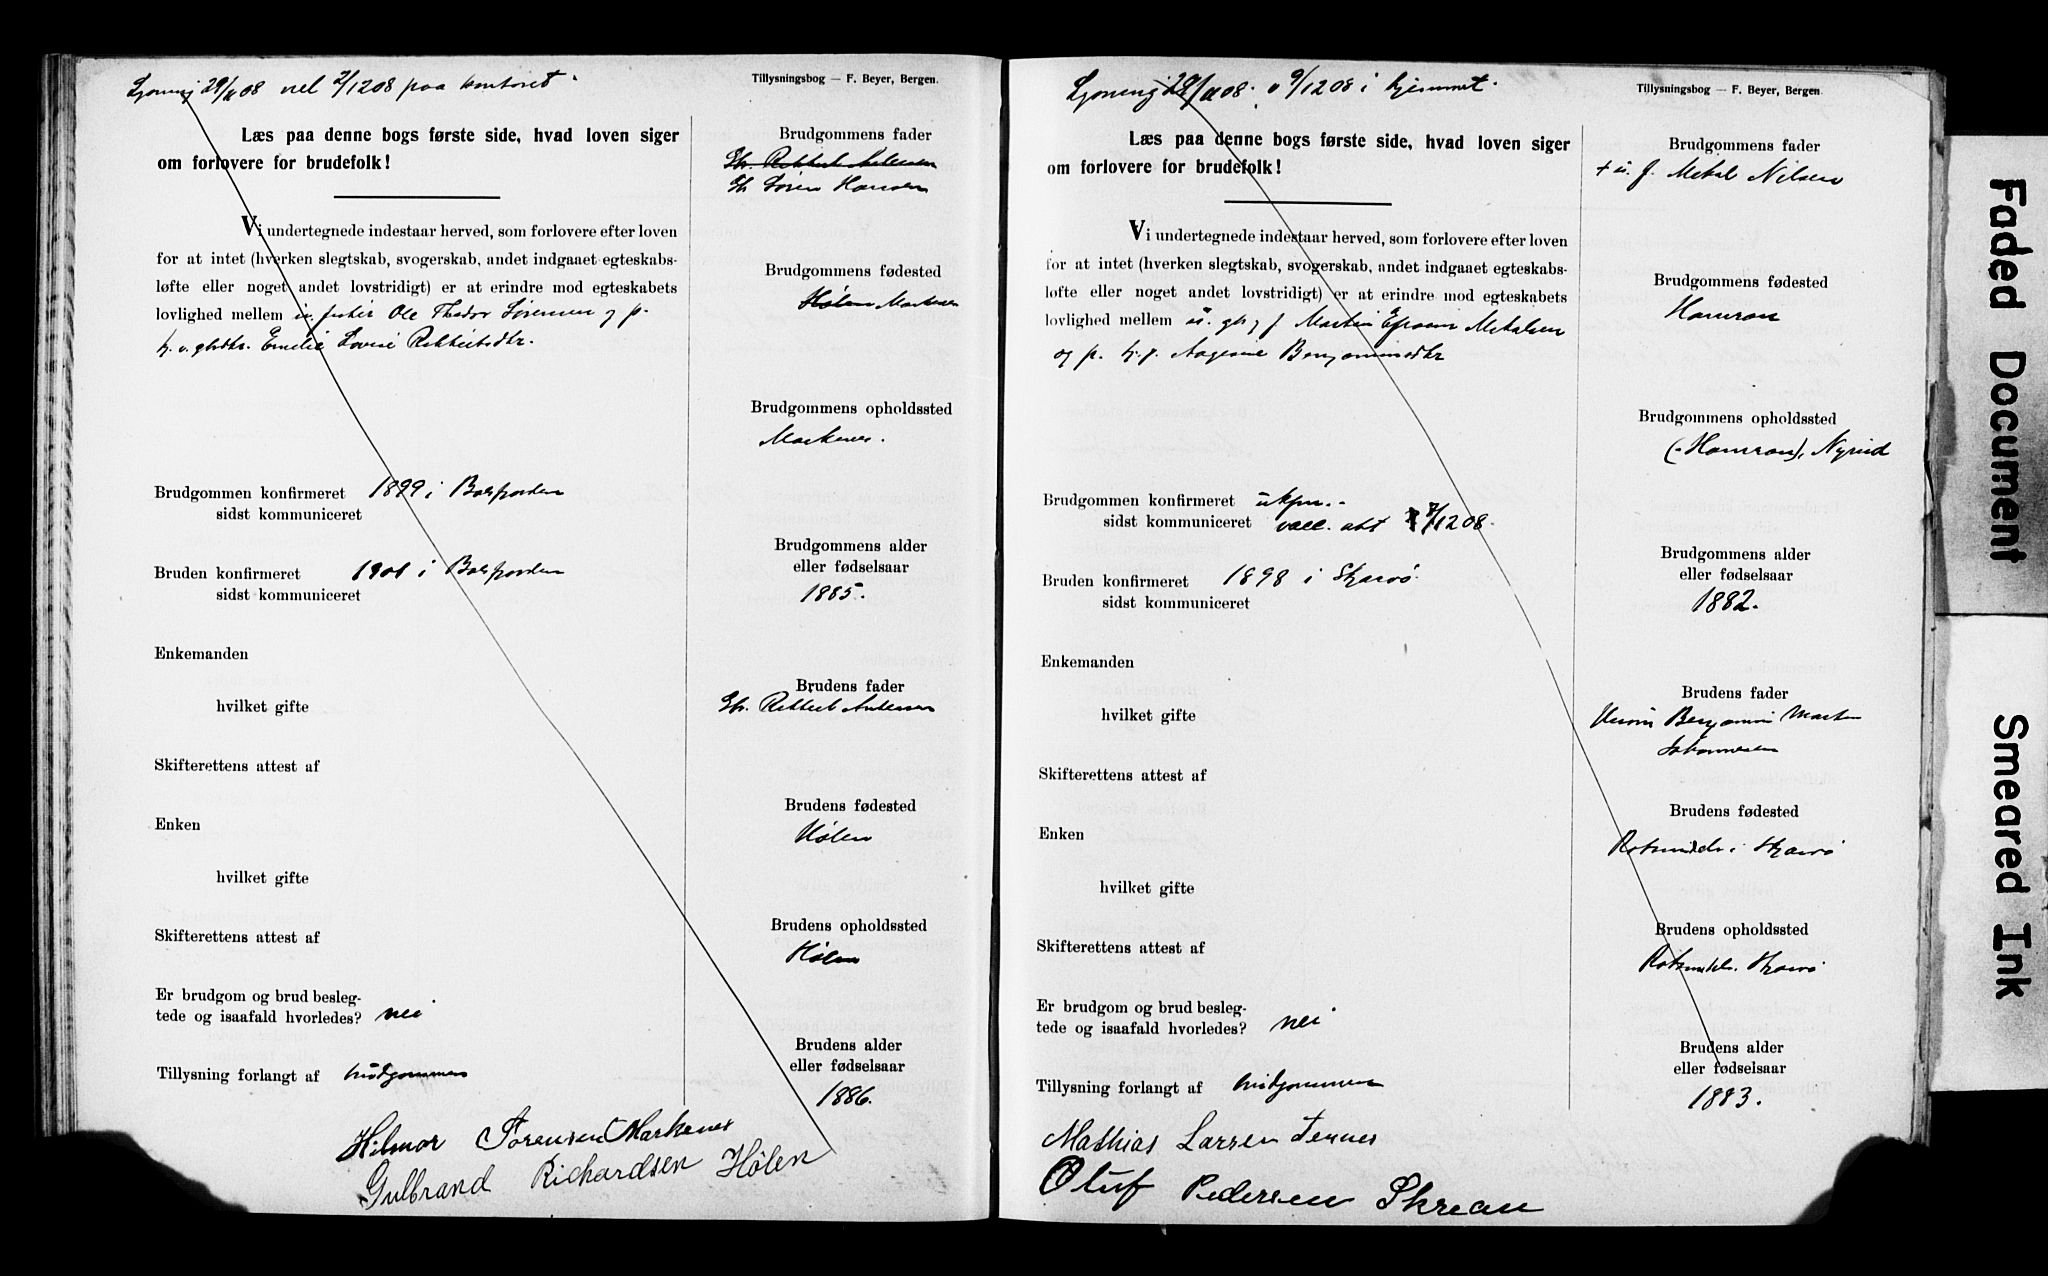 Lysning 29/11 08 viel 2/12 08 paa kontoret.
Tillysningsbog — F. Beyer, Bergen.
Læs paa denne bogs første side, hvad loven siger
om forlovere for brudefolk!
Vi undertegnede indestaar herved, som forlovere efter loven
for at intet (hverken slegtskab, svogerskab, andet indgaaet egteskabs-
løfte eller noget andet lovstridigt) er at erindre mod egteskabets
lovlighed mellem u. fisker Ole Theodor Sørensen og p.
h. v. gbrdtr. Emelie Lovise Rikkertsdtr.
Brudgommen konfirmeret 1899 i Balsfjorden
sidst kommuniceret
Bruden konfirmeret 1901 i Balsfjorden
sidst kommuniceret
Enkemanden
hvilket gifte
Skifterettens attest af
Enken
hvilket gifte
Skifterettens attest af
Er brudgom og brud besleg-
tede og isaafald hvorledes? nei
Tillysning forlangt af brudgommen
Brudgommens fader
Gbr. Rikkert
Gb. Søren Hansen
Brudgommens fødested
Hølen Markenes
Brudgommens opholdssted
Markenes.
Brudgommens alder
eller fødselsaar
1885.
Brudens fader
Gbr. Rikkert Andersen
Brudens fødested
Hølen
Brudens opholdssted
Hølen
Brudens alder
eller fødselsaar
1886.
Hilmor Sørensen Markenes
Gulbrand Richardsen Hølen
Lysning 29/11 08. v 9/12 08 i hjemmet.
Tillysningsbog — F. Beyer, Bergen.
Læs paa denne bogs første side, hvad loven siger
om forlovere for brudefolk!
Vi undertegnede indestaar herved, som forlovere efter loven
for at intet (hverken slegtskab, svogerskab, andet indgaaet egteskabs-
løfte eller noget andet lovstridigt) er at erindre mod egteskabets
lovlighed mellem u. gb. j. Martin Efraim Metalsen
og p. h. j. Aagesine Benjaminsdtr
Brudgommen konfirmeret ukfm. -
sidst kommuniceret vacc. att 7/12 08.
Bruden konfirmeret 1898 i Skjærvø.
sidst kommuniceret
Enkemanden
hvilket gifte
Skifterettens attest af
Enken
hvilket gifte
Skifterettens attest af
Er brudgom og brud besleg-
tede og isaafald hvorledes? nei
Tillysning forlangt af brudgommen
Brudgommens fader
+ u. f. Metal Nilsen
Brudgommens fødested
Hamran
Brudgommens opholdssted
(Hamran), Nyeid
Brudgommens alder
eller fødselsaar
1882.
Brudens fader
Benjamin Martin
Johannesen
Brudens fødested
Rotsundelv i Skjærvø
Brudens opholdssted
Rotsundelv. Skjærvø
Brudens alder
eller fødselsaar
1883.
Mathias Larsen Tennes
Oluf Pedersen Skrean
Faded Document
Smeared Ink